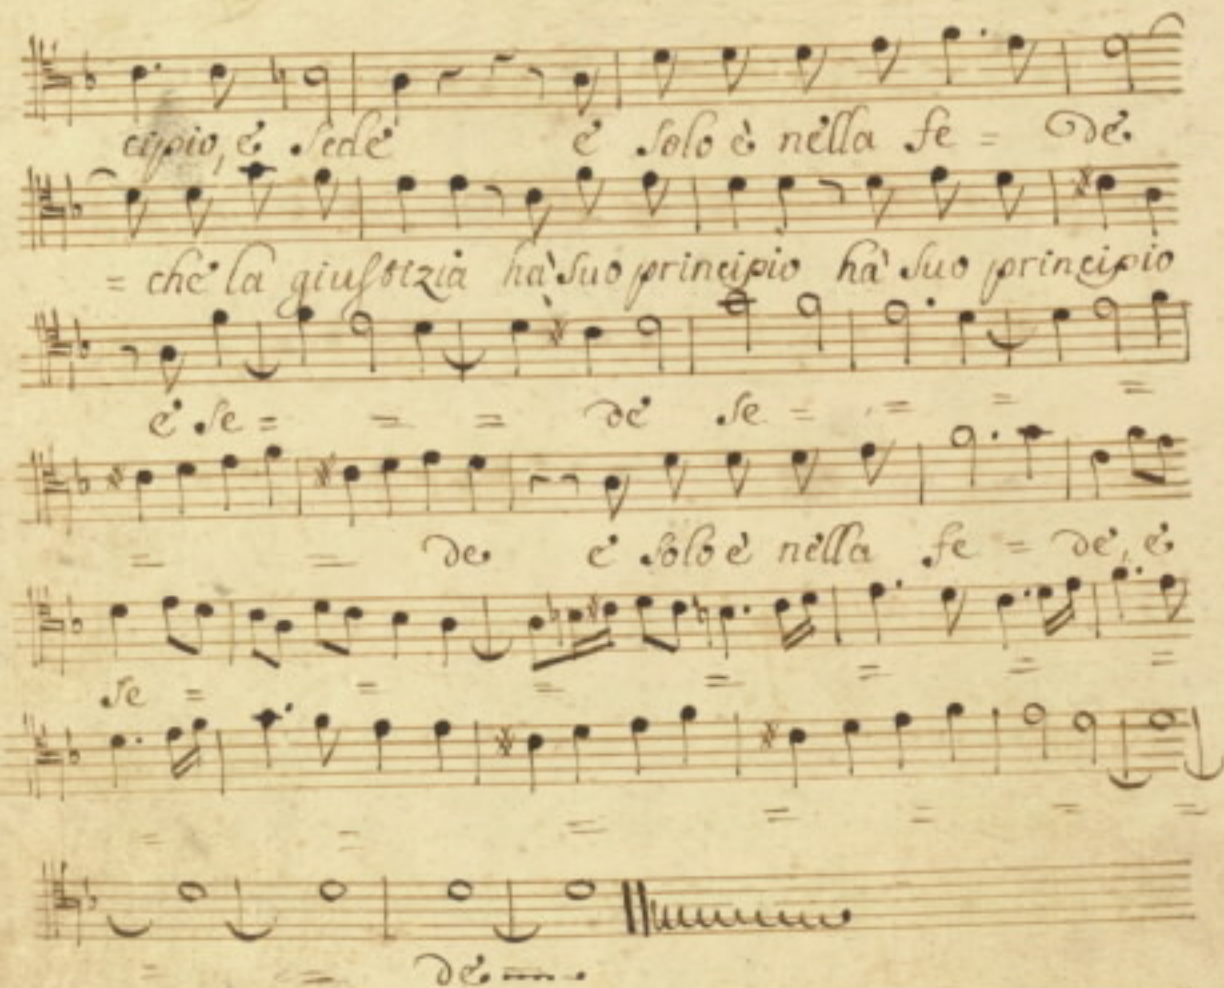 cipio, è sede è solo è nella fe = de
= che la giustizia hà suo principio hà suo principio
è se = = = de se = = = =
= = de è solo è nella fe = de, è
se = = = = = = =
= = = = = = =
= = de